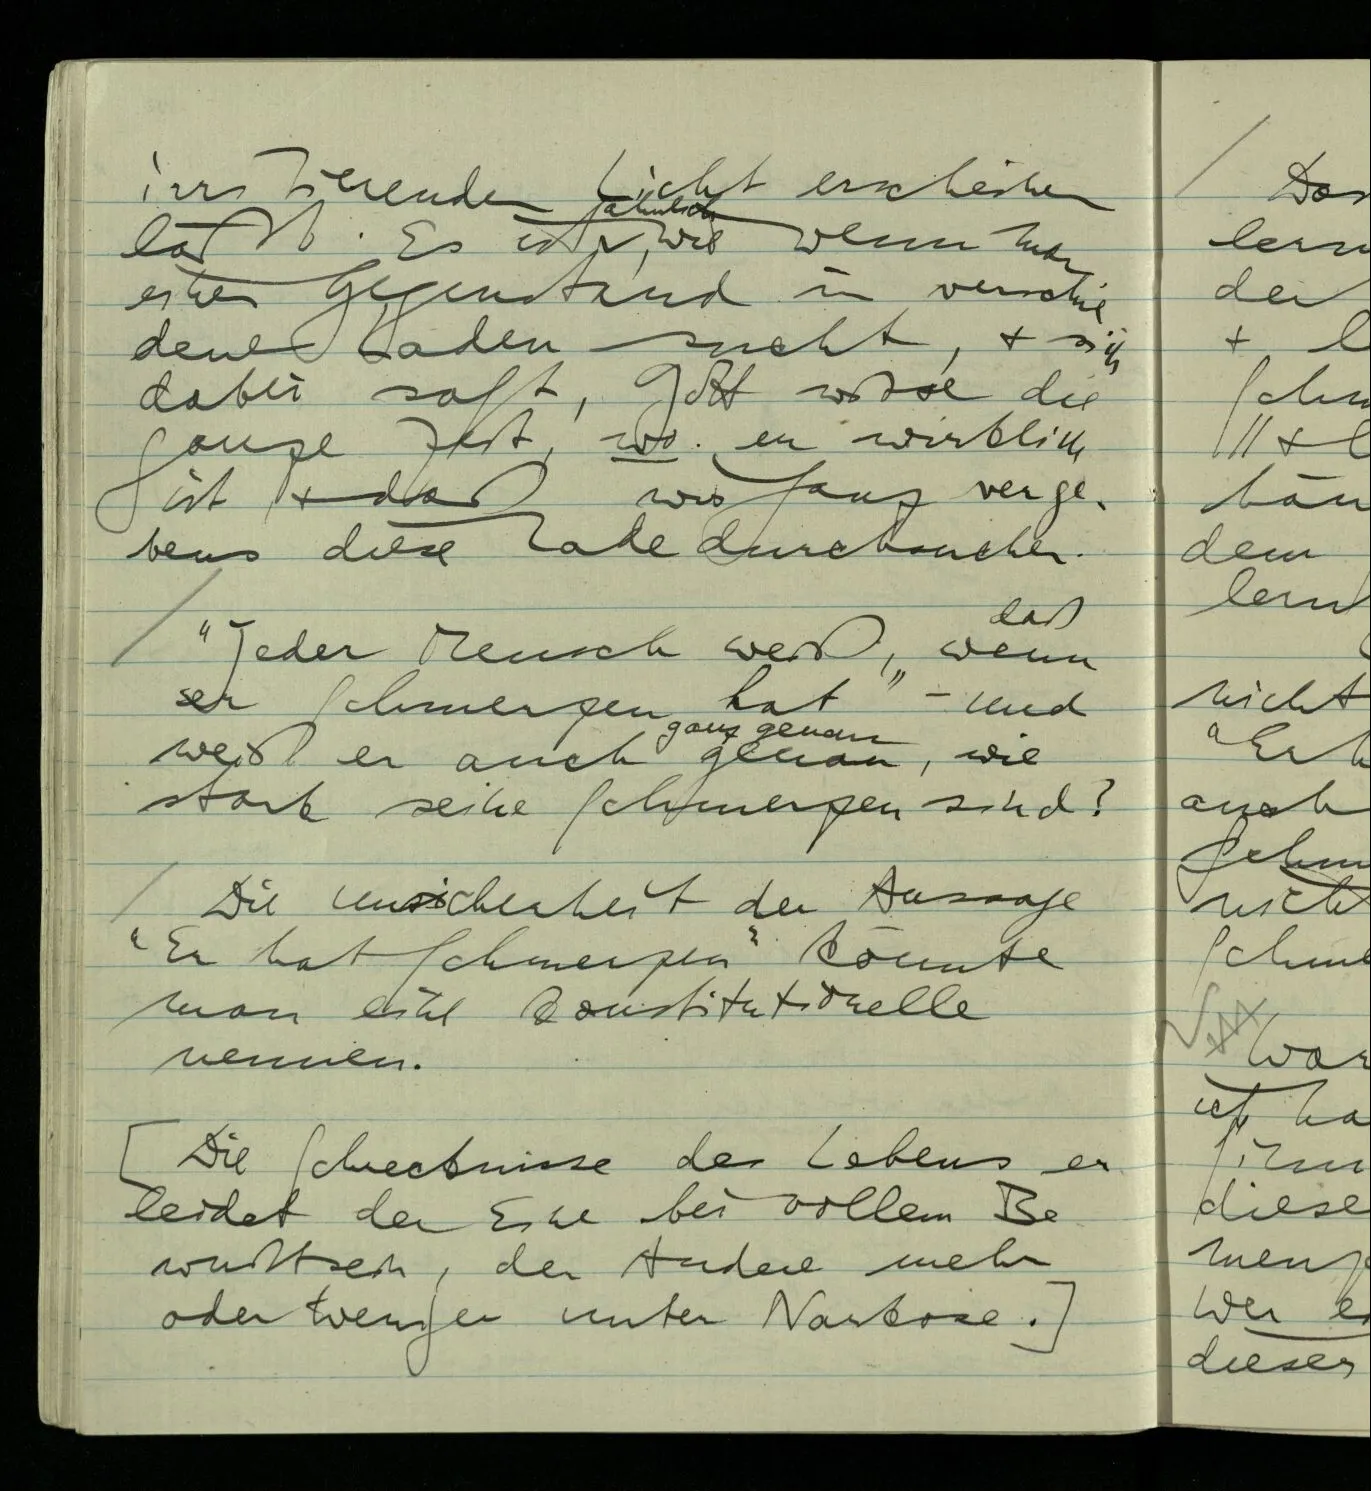 irrisierenden Licht erscheinen
läßt. Es ist ähnlich, wie wenn man
einen Gegenstand in verschie
dene Laden sucht, + sich
dabei sagt, Gott wisse die
ganze Zeit, wo er wirklich
ist + daß wir ganz verge-
bens diese Lade durchsuchen.
/ "Jeder Mensch weiß, daß wenn
er Schmerzen hat" – und
weiß er auch ganz genau genau, wie
stark seine Schmerzen sind?
/ Die Unsicherheit der Aussage
"Er hat Schmerzen" könnte
man eine konstitutionelle
nennen.
[Die Schrecknisse des Lebens er
leidet der Eine bei vollem Be
wußtsein, der Andere mehr
oder weniger unter Narkose.]
/ Das
lern
der
+
Schm
// +
dem
lern
nicht
"Er h
auch
Schm
nicht
Schme
War
ich ha
diese
wer
dieser